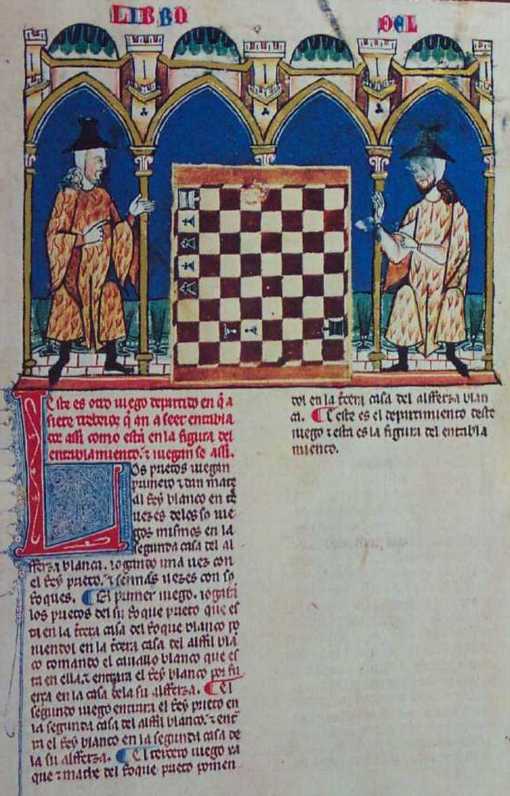 LIBRO DEL
Este es otro iuego departido en q̃ a
siete trebeios q̃ an a seer entabla
dos assi como estan en la figura del
entablamiento. ⁊ iueganse assi.
Los prietos iuegan
primero ⁊ dan mate
al Rey blanco en tres
uezes delos so iue
gos mismos en la
segunda casa del al
fferza blanca. iogando una uez con
el Rey prieto. ⁊ sennas uezes con so
Roques. ¶ El primer iuego. iogara
los prietos del su Roque prieto que es
ta en la t̃cera casa del Roque blanco po
niendol en la t̃cera casa del alffil blan
co tomando el cauallo blanco que es
ta en ella. ⁊ entrara el Rey blanco por fu
erça en la casa dela su alfferza. ¶ El
segundo iuego entrara el Rey prieto en
la segunda casa del alffil blanco. ⁊ entra
ra el Rey blanco en la segunda casa de
la su alfferza. ¶ El tercero iuego xa
que ⁊ mathe del Roque prieto ponien
dol en la t̃cera casa del alfferza blan
ca. ¶ E este es el departimiento deste
iuego ⁊ esta es la figura del entabla
miento.